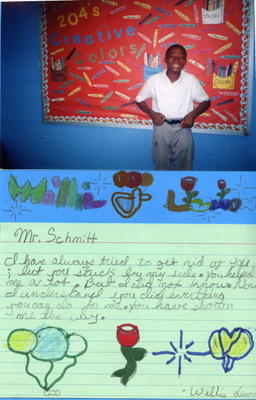 204's
Creative
Colors
Willie
Mr. Schmitt
I have always tried to get rid of you
; but you stuck by my side. You helped
me as not. But I did not know. Now
I understand you did everything
you can do for me. You have shown
me the way.
-Willie